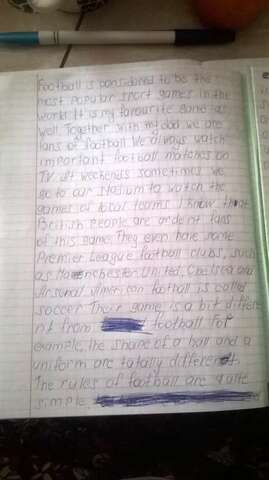 Football is considered to be the
most popular sport games in the
world. It is my favourite game as
well. Together with my dad we are
fans of football. We always watch
important football matches on
TV. At weekends sometimes we
go to our stadium to watch the
games of local teams. I know that
British people are ardent fans
of this game. They even have some
Premier League football clubs, such
as Manchester United, Chelsea and
Arsenal. American football is called
soccer. Their game is a bit differe
nt from football. For
example, the shape of a ball and a
uniform are totally different.
The rules of football are quite
simple